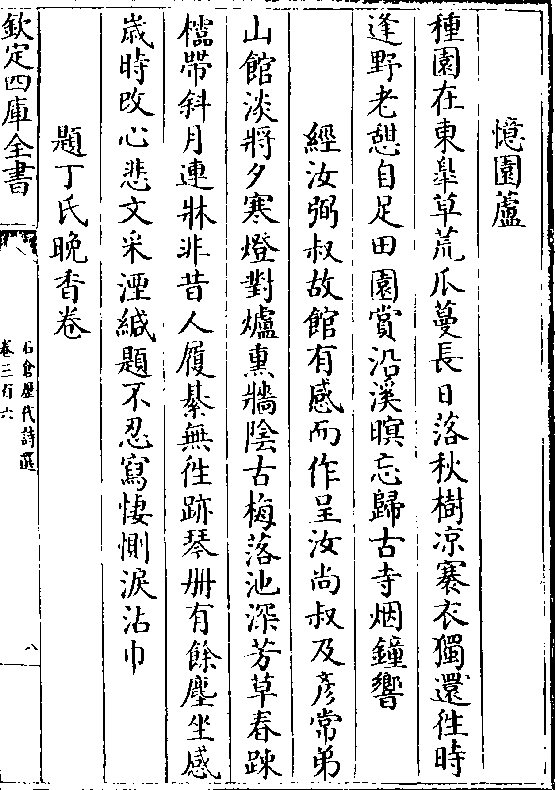 憶園蘆
種園在東臯草荒瓜蔓長日落秋樹凉褰衣獨還徃時
逢野老憇自足田園賞沿溪暝忘歸古寺烟鐘響
經汝弼叔故館有感而作呈汝尚叔及彦常弟
山館淡將夕寒燈對爐熏牆陰古梅落池深芳草春踈
櫺帶斜月連牀非昔人履綦無徃跡琴册有餘塵坐感
歳時改心悲文采湮緘題不忍寫悽惻淚沾巾
題丁氏晩香卷
欽定四庫全書
石倉歴代詩選
卷三百六
八